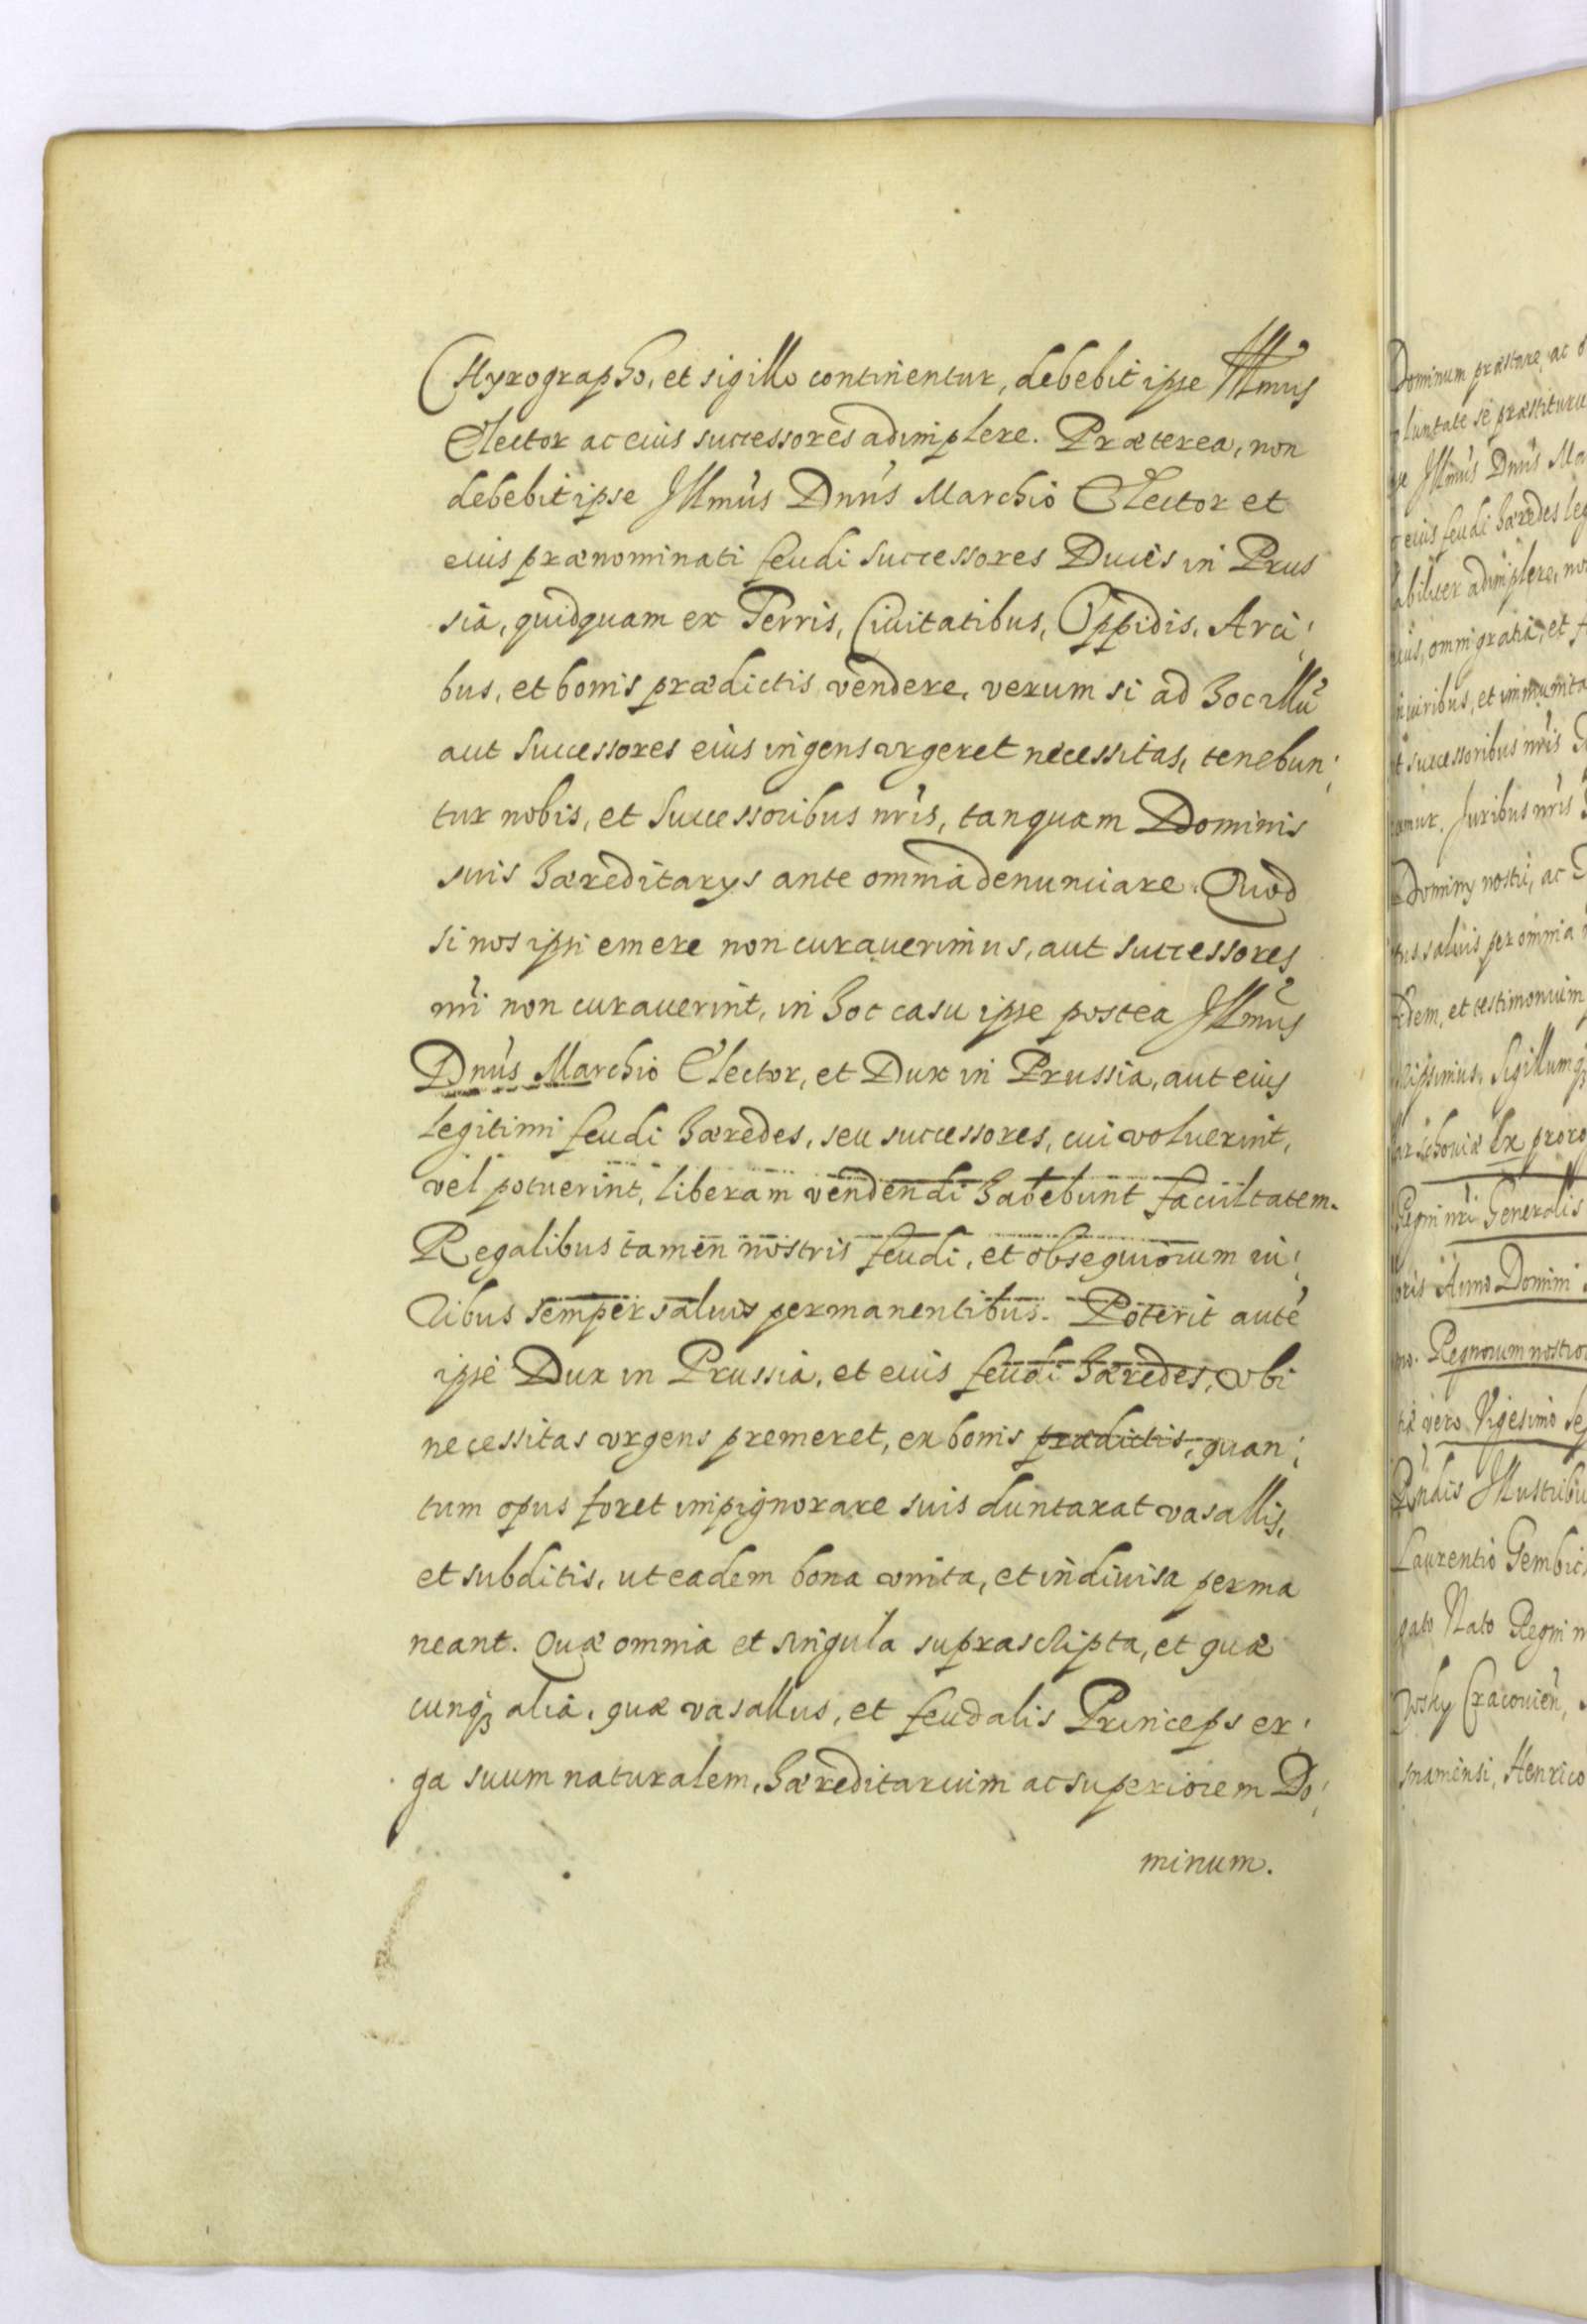 Chyrographo, et sigillo continentur, debebit ipse Illmus
Elector ac eius successores adimplere. Præterea, non
debebit ipse Illmus Dnus Marchio Elector et
eius prænominati feudi Successores Duces in Prus
sia, quidquam ex Terris, Civitatibus, Oppidis, Arci:
bus, et bonis prædictis vendere, verum si ad hoc illũ
aut Successores eius ingens vrgeret necessitas, tenebun:
tur nobis, et Successoribus nris, tanquam Dominis
suis hæreditarys ante omnia denunciare. Quod
si nos ipsi emere non curauerimus, aut successores
nri non curauerint, in hoc casu ipse postea Illmus
Dnus Marchio Elector, et Dux in Prussia, aut eius
legitimi feudi hæredes, seu successores, cui voluerint,
vel potuerint, liberam vendendi habebunt facultatem.
Regalibus tamen nostris feudi, et obsequiorum iu:
ribus semper saluis permanentibus. Poterit autẽ
ipse Dux in Prussia, et eius feudi hæredes, vbi
necessitas vrgens premeret, ex bonis prædictis, quan:
tum opus foret impignorare suis duntaxat vasallis,
et subditis, ut eadem bona vnita, et indiuisa perma
neant. Quæ omnia et singula suprascripta, et quæ
cunq3 alia, quæ vasallus, et feudalis Princeps er:
ga suum naturalem, hæreditarium ac superiorem Do:
minum.
Dominum præstare, ac
luntate se præstituru
Illmus Dnus Ma
eius feudi hæredes leg
abiliter adimplere, no
omni gratia, et
iuribus, et immunita
successoribus nris
Juribus nris
Dominy nostri, ac
saluis per omnia
fidem, et testimonium
Sigillum q3
arschoviæ ex proro
Regni nri Generalis
Anno Domini
Regnorum nostro
vero Vigesimo se
Pndis Illustribu
Laurentio Gembic
gato Nato Regni n
Cracovien,
snamensi, Henrico